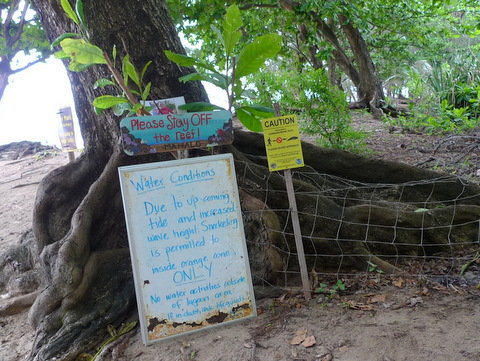 Please Stay OFF
the reef!
MAHALO
CAUTION
Water Conditions
Due to up-coming
tide and increased
wave height, Snorkeling
is permitted to
inside orange cone
ONLY
No water activities outside
of lagoon area.
If in doubt, ask lifeguards